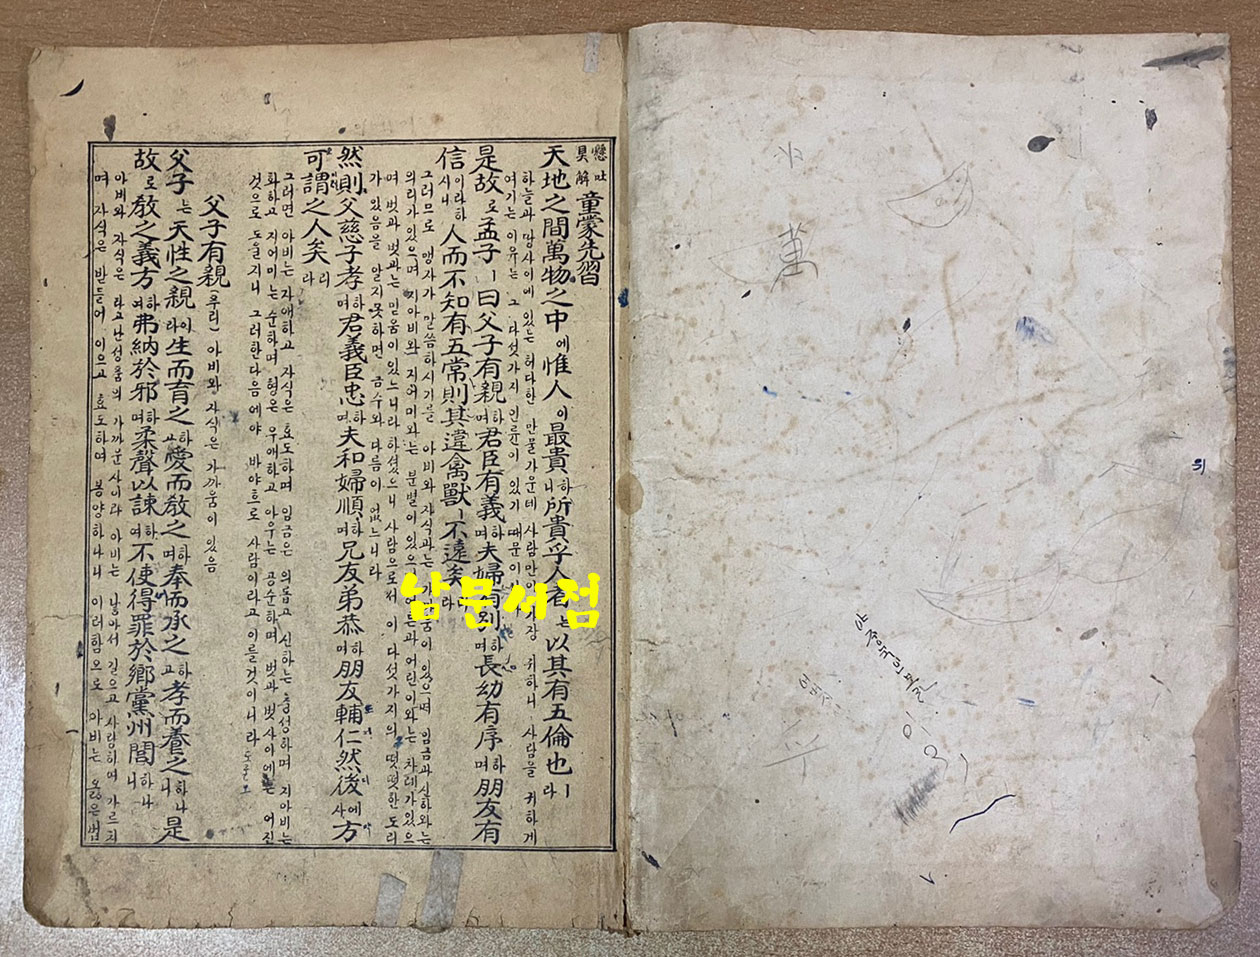 懸吐
具解 童蒙先習
天地之間萬物之中에惟人이最貴하니所貴乎人者는以其有五倫也ㅣ라
하늘과 땅사이에 있는 허다한 만물가운데 사람만이 가장 귀하니 사람을 귀하게
여기는 이유는 그 다섯가지 인륜이 있기 때문이
是故로孟子ㅣ曰父子有親하며君臣有義하며夫婦有別하며長幼有序하며朋友有
信이라하시니人而不知有五常則其違禽獸ㅣ不遠矣리라
그러므로 맹자가 말씀하시기를 아비와 자식과는 가까움이 있으며 임금과 신하와는
의리가 있으며 지아비와 지어미와는 분별이 있으며 어른과 어린이와는 차례가 있으
며 벗과 벗과는 믿음이 있느니라 하셨으니 사람으로서 이 다섯가지의 떳떳한 도리
가 있음을 알지못하면 금수와 다름이 없느니라
然則父慈子孝하며君義臣忠하며夫和婦順하며兄友弟恭하며朋友輔仁然後에사方
可謂之人矣리라
그러면 아비는 자애하고 자식은 효도하며 임금은 의롭고 신하는 충성하며 지아비는
화하고 지어미는 순하며 형은 우애하고 아우는 공순하며 벗과 벗사이에는 어진
것으로 도울지니 그러한다음에야 바야흐로 사람이라고 이를것이니라
父子有親 (풀이) 아비와 자식은 가까움이 있음
父子는天性之親이라生而育之하고愛而敎之하며奉而承之하고孝而養之하나니是
故로敎之義方하며弗納於邪하며柔聲以諫하여不使得罪於鄕黨州閭하나니
아비와 자식은 타고난성품의 가까운사이라 아비는 낳아서 기르고 사랑하여 가르치
며 자식은 받들어 이으고 효도하여 봉양하나니 이러함으로 아비는 옳은법
一
남문서점
萬